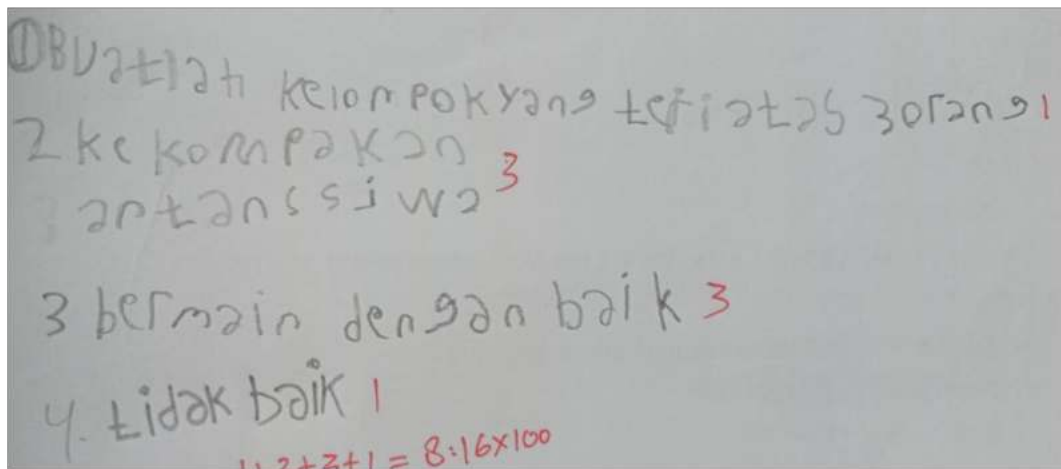 ① BUatlah kelompok yang teriatas 3orang 1
2 kekompakan
antanssiwa 3
3 bermain dengan baik 3
4. tidak baik 1
1+3+3+1 = 8:16x100